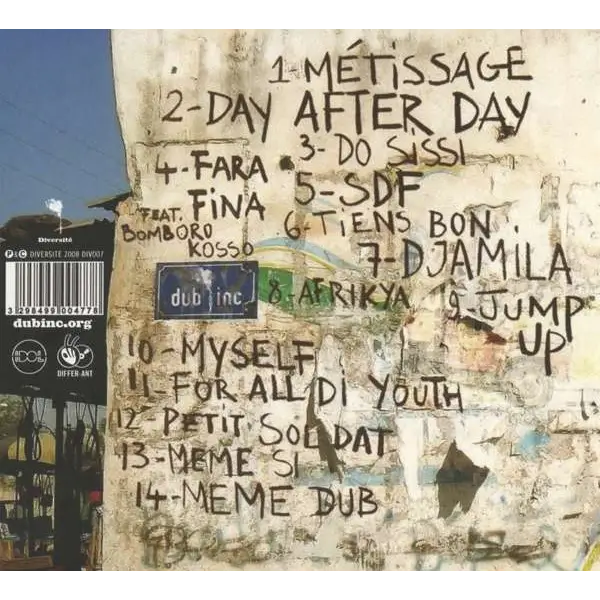 1-MÉTISSAGE
2-DAY AFTER DAY
3-DO SISSI
4-FARA
FINA
FEAT.
BOMBORO
KOSSO
5-SDF
6-TIENS BON
7-DJAMILA
8-AFRIKYA
9-JUMP
UP
10-MYSELF
11-FOR ALL DI YOUTH
12-PETIT SOLDAT
13-MEME SI
14-MEME DUB
dub inc.
Diversité
P&C DIVERSITE 2008 DIV007
3 298499 004778
dubinc.org
DIFFER-ANT